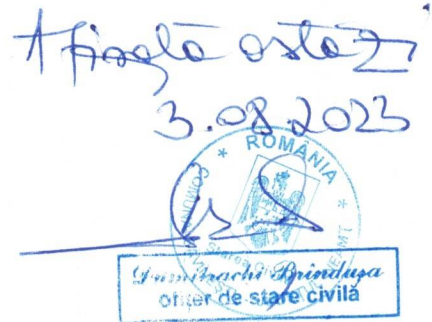 Afișată astăzi
3.08.2023
* ROMÂNIA *
Dumitrachi Brîndușa
ofițer de stare civilă